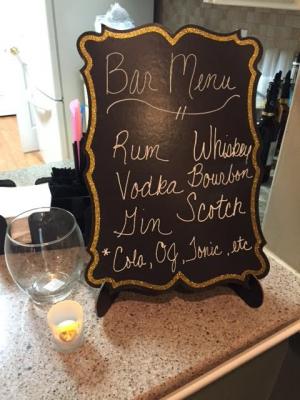 Bar Menu
Rum Whiskey
Vodka Bourbon
Gin Scotch
* Cola, OJ, Tonic, etc